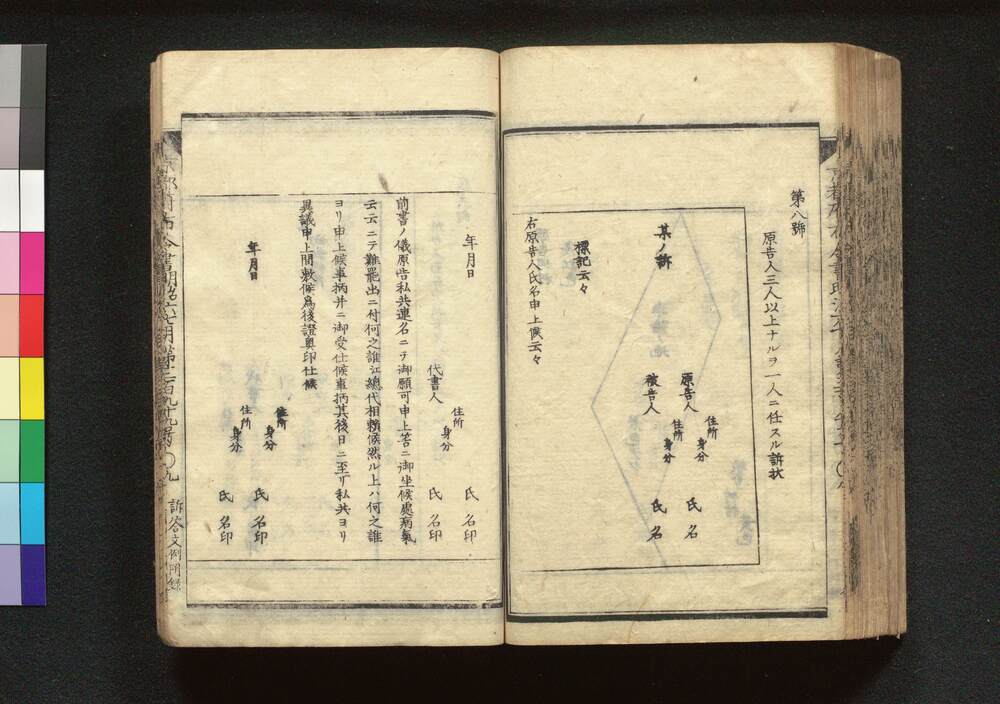 第八號
原告人三人以上ナルヲ一人ニ任スル訴狀
某ノ訴
住所
身分
原告人 氏名
住所
身分
被告人 氏名
標記云々
右原告人氏名申上候云々
年月日
氏名印
住所
身分
代書人 氏名印
前書ノ儀原告私共連名ニテ御願可申上筈ニ御坐候處病氣
云云ニテ難罷出ニ付何之誰江總代相賴候然ル上ハ何之誰
ヨリ申上候事柄并ニ御受仕候事柄其後日ニ至リ私共ヨリ
異議申上間敷候爲後證奧印仕候
年月日
住所
身分
氏名印
住所
身分
氏名印
訴答文例附錄